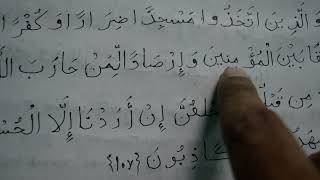 وَالَّذِينَ اتَّخَذُوا مَسْجِدًا ضِرَارًا وَ كُفْرًا
قًا بَيْنَ الْمُؤْمِنِينَ وَإِرْصَادًا لِّمَنْ حَارَبَ
مِن قَبْلُ إِنْ أَرَدْنَا إِلَّا الْحُسْ
كَاذِبُونَ {١٠٧}